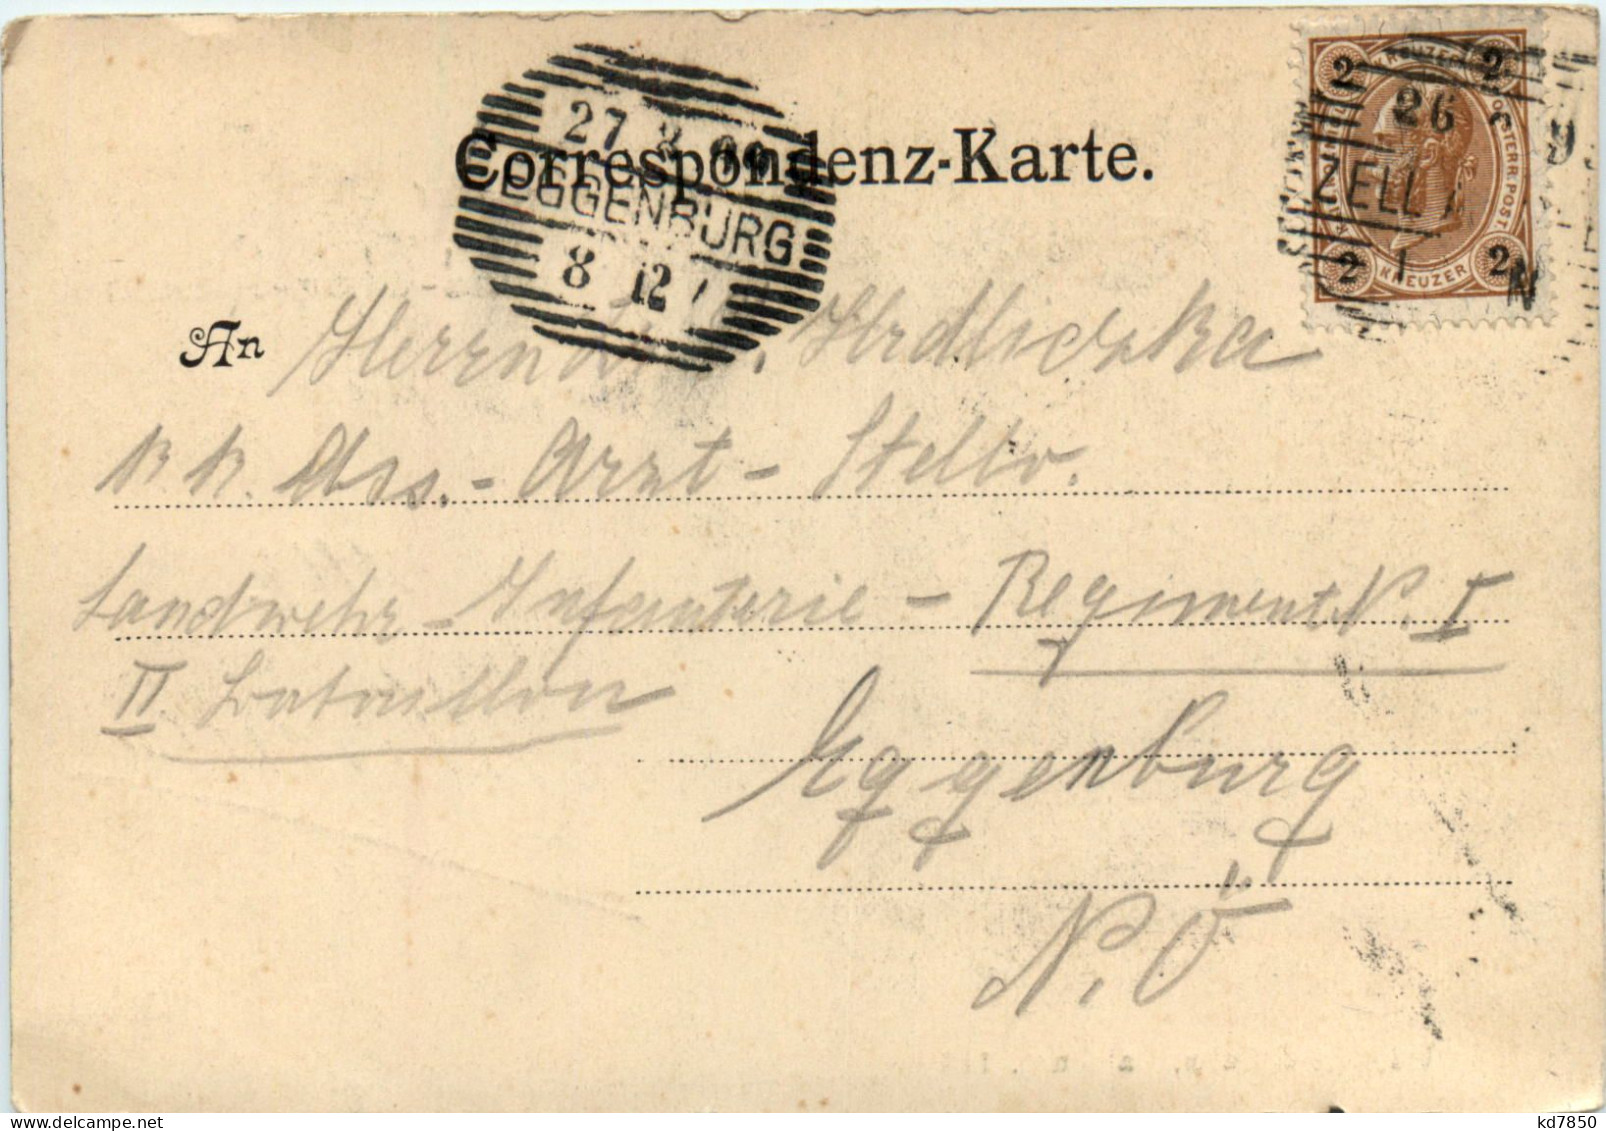 Correspondenz-Karte.
27 8 99
EGGENBURG
8 12
2 KREUZER 2
26
ZELL A
ÖSTERR. POST
2 KREUZER 2
N
An Herrn
k. k. Ass.-Arzt-Stellv.
Landwehr-Infanterie-Regiment N. I
II Bataillon
Eggenburg
N. Ö
kd7850